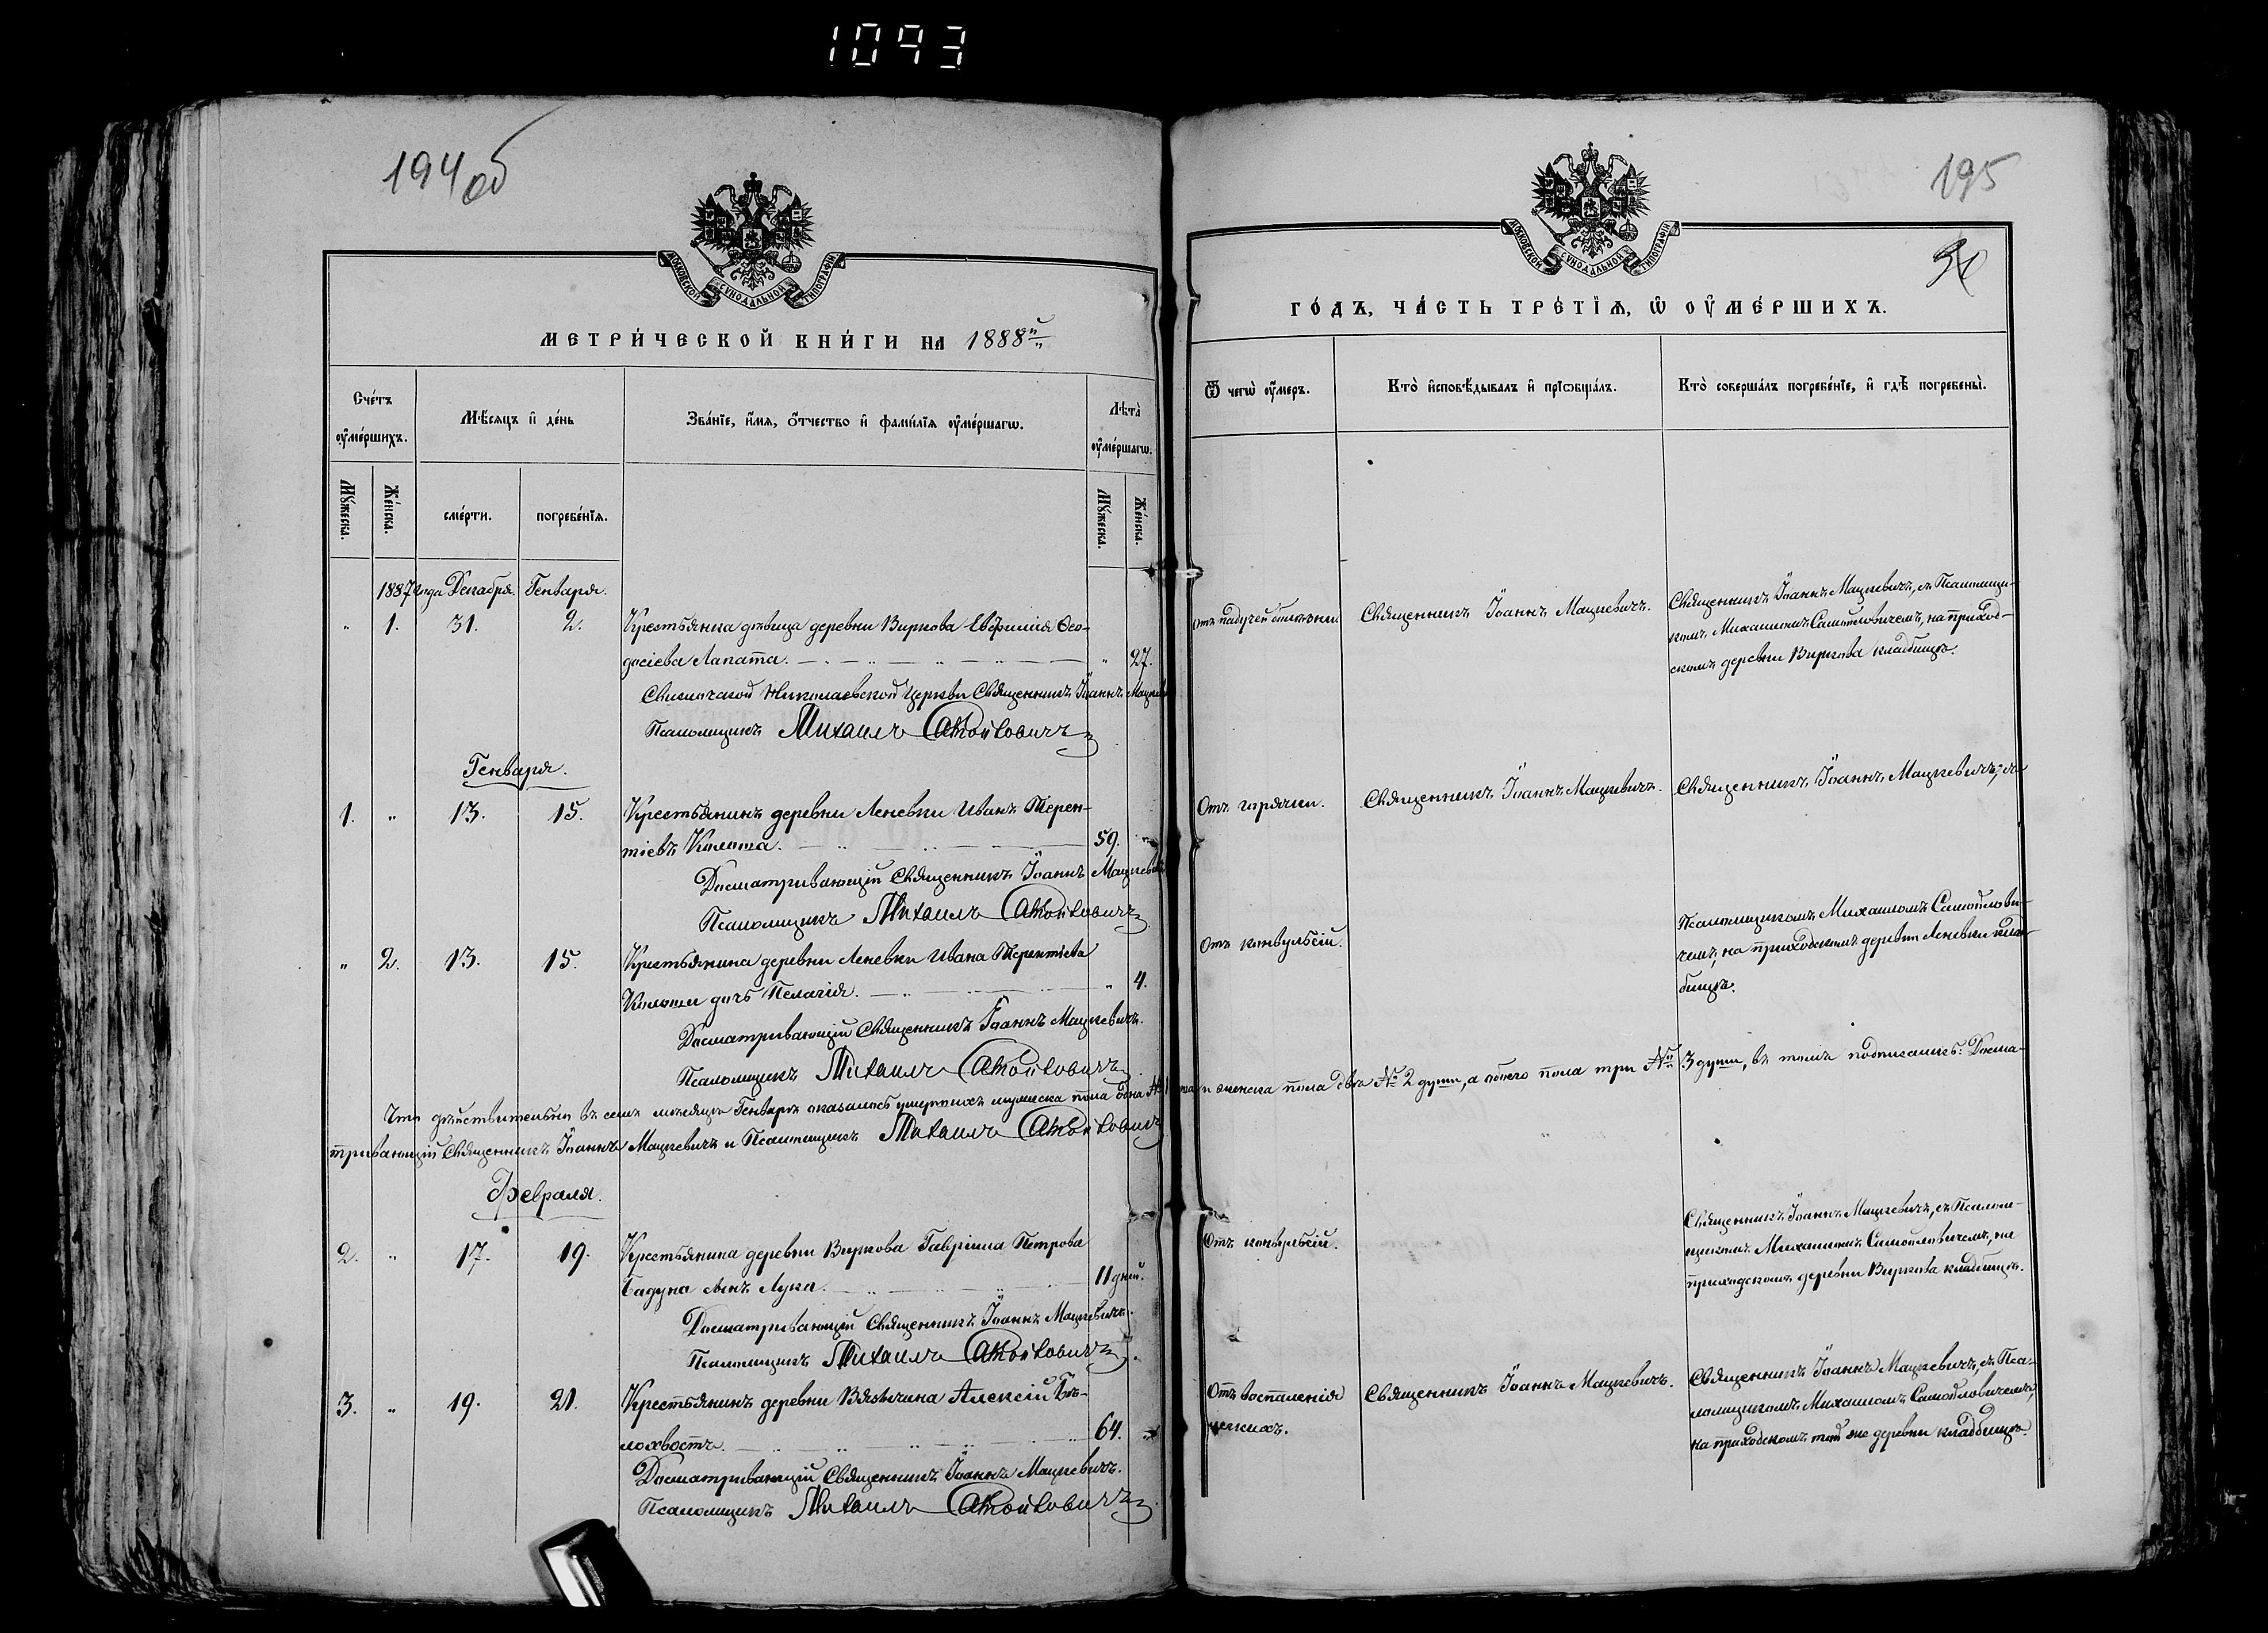 1093
194об
МОСКОВСКОЙ СѴНОДАЛЬНОЙ ТИПОГРАФІИ
МЕТРИ́ЧЕСКОЙ КНИ́ГИ НА 1888й
Сче́тъ ᲂу҆ме́ршихъ.
Мѣ́сяцъ и҆ де́нь
Зва́нїе, и҆́мя, ѻ҆́тчество и҆ фами́лїя ᲂу҆ме́ршагѡ.
Лѣта̀ ᲂу҆ме́ршагѡ.
Мꙋ́жеска.
Же́нска.
сме́рти.
погребе́нїѧ.
Мꙋ́жеска.
Же́нска.
1887 года Декабря. Генваря.
" 1. 31. 2. Крестьянка дѣвица деревни Виркова Евфимія Ѳео-
досіева Лапата. " 27.
Николаевской Церкви Священникъ Іоаннъ
Псаломщикъ Михаилъ Самойловичъ
Генваря.
1. " 13. 15. Крестьянинъ деревни Леневки Иванъ Терен-
тіевъ 59. "
Священникъ Іоаннъ Мацкевичъ
Псаломщикъ Михаилъ Самойловичъ
" 2. 13. 15. Крестьянина деревни Леневки Ивана Терентіева
дочь Пелагія. " 4.
Священникъ Іоаннъ Мацкевичъ.
Псаломщикъ Михаилъ Самойловичъ
Что дѣйствительно въ семъ мѣсяцѣ Генварѣ оказалось умершихъ мужеска пола одна № 1 и женска пола двѣ № 2 души, а обоего пола три № 3 души, въ томъ подписались:
Священникъ Іоаннъ Мацкевичъ и Псаломщикъ Михаилъ Самойловичъ
Февраля.
2. " 17. 19. Крестьянина деревни Виркова Гавріила Петрова
Бадуна сынъ Лука. 11 дней.
Священникъ Іоаннъ Мацкевичъ.
Псаломщикъ Михаилъ Самойловичъ.
3. " 19. 21. Крестьянинъ деревни Алексій Бѣ-
лохвостъ. 64. "
Священникъ Іоаннъ Мацкевичъ.
Псаломщикъ Михаилъ Самойловичъ
195
МОСКОВСКОЙ СѴНОДАЛЬНОЙ ТИПОГРАФІИ
ГО́ДЪ, ЧА́СТЬ ТРЕ́ТЇѦ, Ѡ҆ ОУ҆МЕ́РШИХЪ.
Ѿ чегѡ̀ ᲂу҆́меръ.
Кто̀ и҆сповѣ́дывалъ и҆ прїѡбща́лъ.
Кто̀ соверша́лъ погребе́нїе, и҆ гдѣ̀ погребены̀.
отъ падучей болѣзни
Священникъ Іоаннъ Мацкевичъ.
Священникъ Іоаннъ Мацкевичъ, съ Псаломщи-
комъ Михаиломъ Самойловичемъ, на приход-
скомъ деревни Виркова кладбищѣ.
Отъ горячки.
Священникъ Іоаннъ Мацкевичъ.
Священникъ Іоаннъ Мацкевичъ, съ
Отъ конвульсій.
Псаломщикомъ Михаиломъ Самойлови-
чемъ, на приходскомъ деревни Леневки клад-
бищѣ.
Отъ конвульсій.
Священникъ Іоаннъ Мацкевичъ, съ Псалом-
щикомъ Михаиломъ Самойловичемъ, на
приходскомъ деревни Виркова кладбищѣ.
Отъ воспаленія
легкихъ.
Священникъ Іоаннъ Мацкевичъ.
Священникъ Іоаннъ Мацкевичъ, съ Пса-
ломщикомъ Михаиломъ Самойловичемъ,
на приходскомъ той же деревни кладбищѣ.